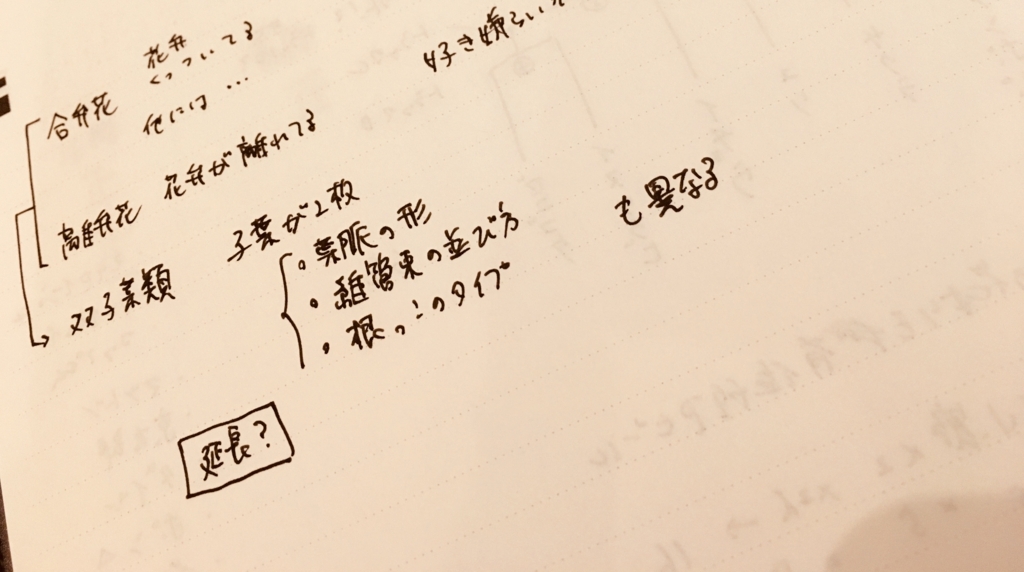 花弁
くっついてる
合弁花
他には…
好き嫌い
離弁花 花弁が離れてる
双子葉類 子葉が2枚
・葉脈の形
・維管束の並び方
・根っこのタイプ
も異なる
延長?